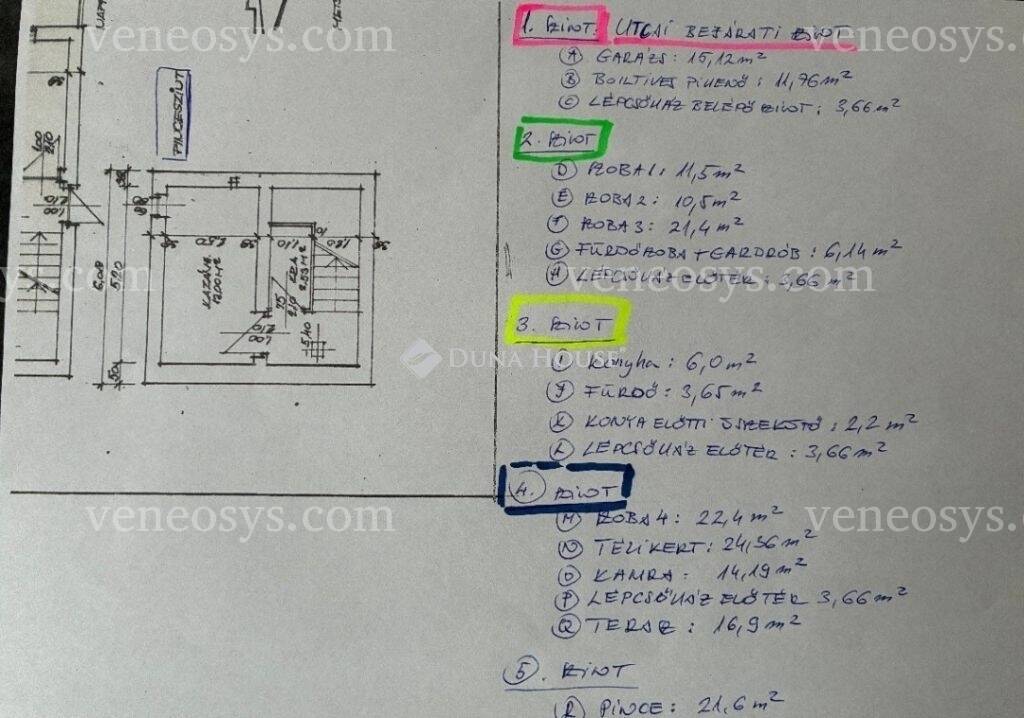 PINCESZINT
KAZÁN.
12.00 M²
veneosys.com
veneosys.com
DUNA HOUSE
veneosys.com
veneosys.com
veneosys.com
veneosys.com
1. SZINT. UTCAI BEJÁRATI SZINT
A GARÁZS: 15,12 m²
B BOLTÍVES PIHENŐ: 11,76 m²
C LÉPCSŐHÁZ BELÉPŐ SZINT: 3,66 m²
2. SZINT
D SZOBA 1: 11,5 m²
E SZOBA 2: 10,5 m²
F SZOBA 3: 21,4 m²
G FÜRDŐSZOBA + GARDRÓB: 6,14 m²
H LÉPCSŐHÁZ ELŐTÉR: 3,66 m²
3. SZINT
I Konyha: 6,0 m²
J FÜRDŐ: 3,65 m²
K KONYA ELŐTTI ÖSSZEKÖTŐ: 2,2 m²
L LÉPCSŐHÁZ ELŐTÉR: 3,66 m²
4. SZINT
M SZOBA 4: 22,4 m²
N TÉLIKERT: 24,36 m²
O KAMRA: 14,19 m²
P LÉPCSŐHÁZ ELŐTÉR 3,66 m²
Q TERASZ: 16,9 m²
5. SZINT
R PINCE: 21,6 m²